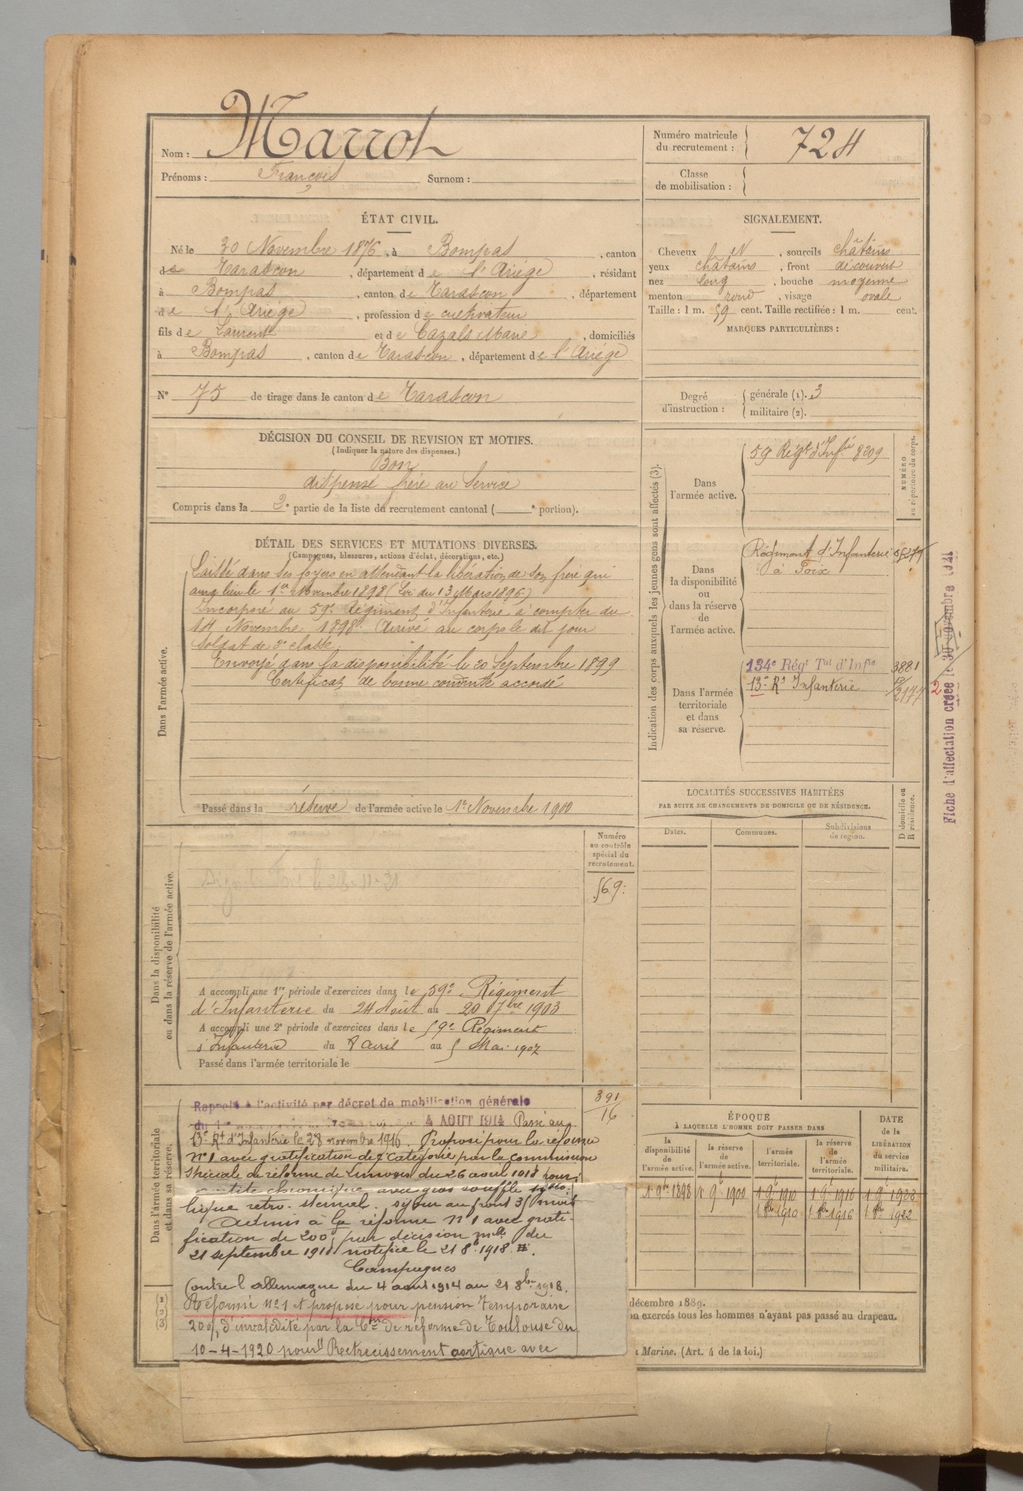 Nom : Marrot
Prénoms : François Surnom :
Numéro matricule du recrutement : 724
Classe de mobilisation :
ÉTAT CIVIL.
Né le 30 Novembre 1876, à Bompas, canton
de Tarascon, département de l'Ariège, résidant
à Bompas, canton de Tarascon, département
de l'Ariège, profession de cultivateur
fils de Laurent et de Cazals Marie, domiciliés
à Bompas, canton de Tarascon, département de l'Ariège
N° 75 de tirage dans le canton de Tarascon
SIGNALEMENT.
Cheveux N, sourcils châtains
yeux châtains, front découvert
nez long, bouche moyenne
menton rond, visage ovale
Taille : 1 m. 59 cent. Taille rectifiée : 1 m. cent.
MARQUES PARTICULIÈRES :
Degré d'instruction : générale (1). 3
militaire (2).
DÉCISION DU CONSEIL DE REVISION ET MOTIFS.
(Indiquer la nature des dispenses.)
Bon
dispensé frère au service
Compris dans la 2e partie de la liste du recrutement cantonal ( e portion).
DÉTAIL DES SERVICES ET MUTATIONS DIVERSES.
(Campagnes, blessures, actions d'éclat, décorations, etc.)
Dans l'armée active.
Laissé dans ses foyers en attendant la libération de son frère qui
aura lieu le 1er Novembre 1898 (Loi du 13 Mars 1896)
Incorporé au 59e régiment d'Infanterie à compter du
14 Novembre 1898. Arrivé au corps le dit jour
soldat de 2e classe
Envoyé dans la disponibilité le 20 Septembre 1899
Certificat de bonne conduite accordé
Passé dans la réserve de l'armée active le 1er Novembre 1900
Indication des corps auxquels les jeunes gens sont affectés (3).
NUMÉRO au répertoire du corps.
Dans l'armée active.
59 Régt d'Infie 8209
Dans la disponibilité ou dans la réserve de l'armée active.
Régiment d'Infanterie
à Foix
Dans l'armée territoriale et dans sa réserve.
134e Régt Tal d'Infie 3881
13e Rt Infanterie
Fiche d'affectation créée le 30 novembre 1921
LOCALITÉS SUCCESSIVES HABITÉES
PAR SUITE DE CHANGEMENTS DE DOMICILE OU DE RÉSIDENCE.
D domicile ou R résidence.
Dates. Communes. Subdivisions de région.
Numéro au contrôle spécial du recrutement.
569
Dans la disponibilité ou dans la réserve de l'armée active.
A accompli une 1re période d'exercices dans le 59e Régiment
d'Infanterie du 24 Août au 20 7bre 1903
A accompli une 2e période d'exercices dans le 59e Régiment
d'Infanterie du 8 Avril au 5 Mai 1907
Passé dans l'armée territoriale le
Dans l'armée territoriale et dans sa réserve.
391
16
Rappelé à l'activité par décret de mobilisation générale
4 AOUT 1914 Passé au
13e Rt d'Infanterie le 28 novembre 1916. Proposé pour la réforme
n°1 avec gratification de 8e catégorie par la commission
spéciale de réforme de Limoux du 26 août 1918 pour
avec gros souffle
lique retro-sternal. séjour au front 35 mois
Admis à la réforme N°1 avec grati-
fication de 200f par décision mlle du
21 septembre 1918 notifiée le 21 8e 1918.
Campagnes
Contre l'Allemagne du 4 août 1914 au 21 8bre 1918.
Réformé n°1 et proposé pour pension temporaire
20% d'invalidité par la Con de réforme de Toulouse du
10-4-1920 pour Rétrécissement aortique avec
ÉPOQUE
À LAQUELLE L'HOMME DOIT PASSER DANS
la disponibilité de l'armée active.
la réserve de l'armée active.
l'armée territoriale.
la réserve de l'armée territoriale.
DATE de la LIBÉRATION du service militaire.
1 9bre 1898 1 9e 1900 1 9e 1910 1 9e 1916 1 9e 1922
1 8bre 1910 1 8bre 1916 1 8bre 1922
(1)
(2)
(3)
décembre 1889.
on exercés tous les hommes n'ayant pas passé au drapeau.
Marine. (Art. 4 de la loi.)